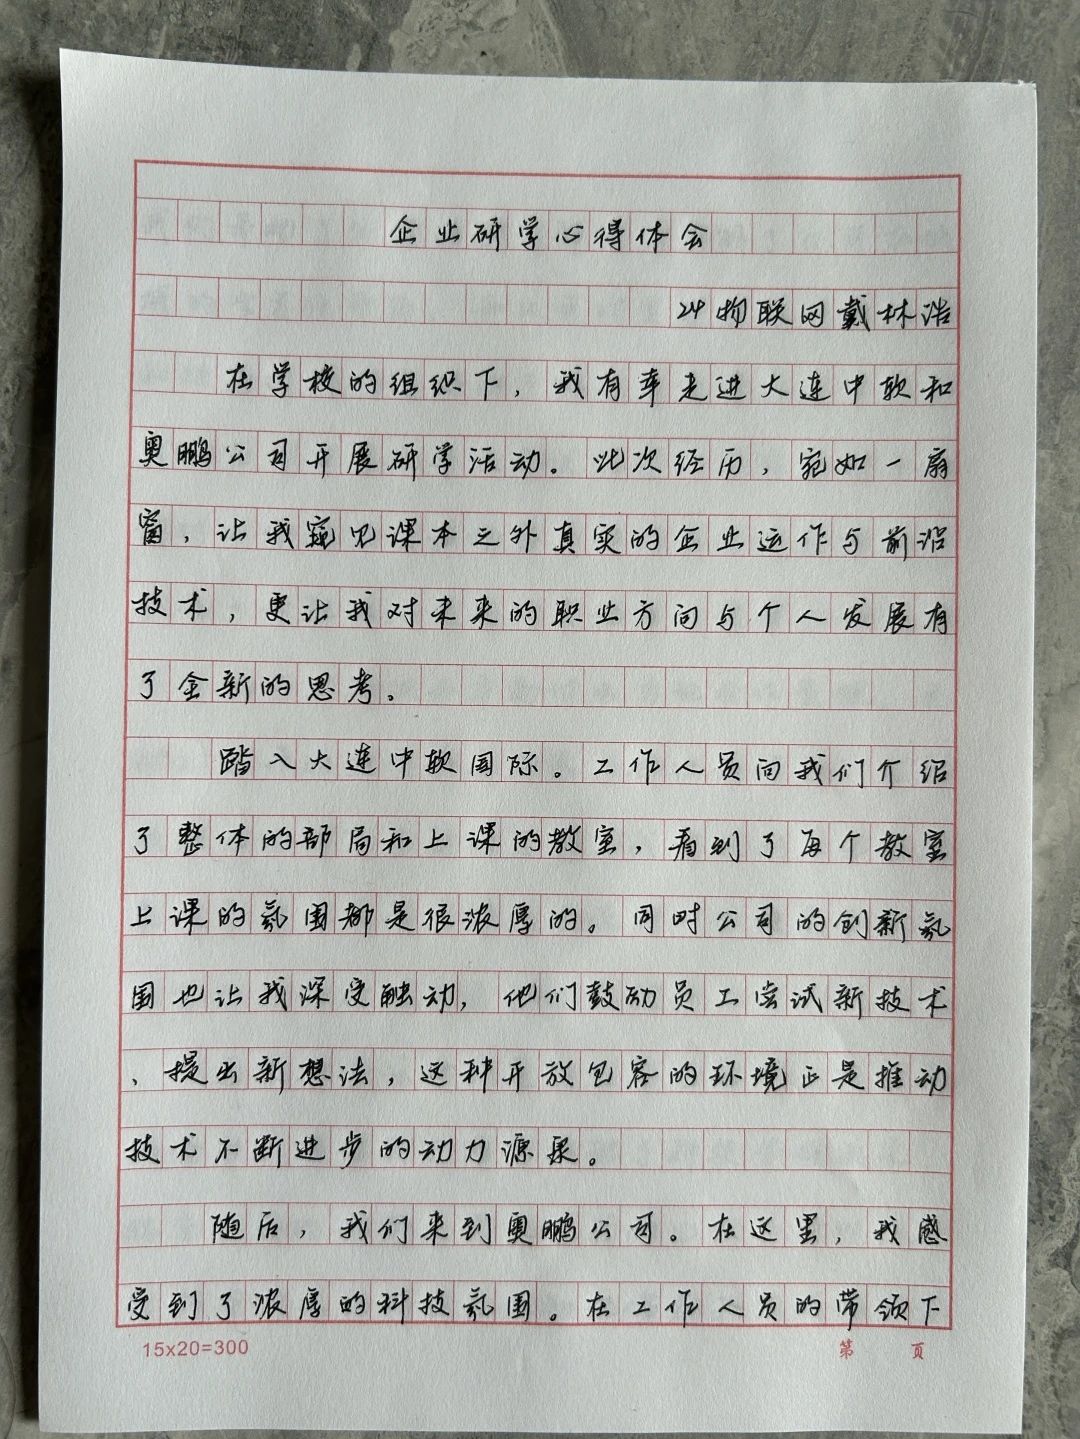 企业研学心得体会
24物联网戴林浩
在学校的组织下，我有幸走进大连中软和
奥鹏公司开展研学活动。此次经历，宛如一扇
窗，让我窥见课本之外真实的企业运作与前沿
技术，更让我对未来的职业方向与个人发展有
了全新的思考。
踏入大连中软国际。工作人员向我们介绍
了整体的部局和上课的教室，看到了每个教室
上课的氛围都是很浓厚的。同时公司的创新氛
围也让我深受触动，他们鼓励员工尝试新技术
、提出新想法，这种开放包容的环境正是推动
技术不断进步的动力源泉。
随后，我们来到奥鹏公司。在这里，我感
受到了浓厚的科技氛围。在工作人员的带领下
15x20=300
第 页